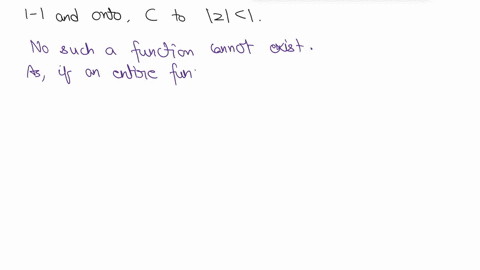 1-1 and onto, C to |z|<1.
No such a function cannot exist.
As, if an entire fun